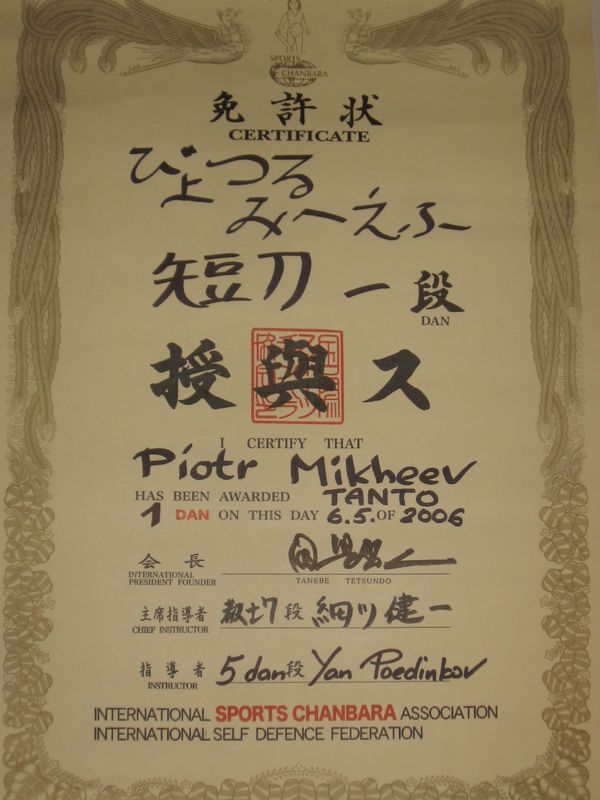 SPORTS
CHANBARA
免許状
CERTIFICATE
ぴょつる
みへえふー
短刀 一段
DAN
授與ス
I CERTIFY THAT
Piotr Mikheev
HAS BEEN AWARDED TANTO
1 DAN ON THIS DAY 6.5. OF 2006
会長
INTERNATIONAL
PRESIDENT FOUNDER
TANEBE TETSUNDO
主席指導者 教士7段 細川健一
CHIEF INSTRUCTOR
指導者 5 dan段 Yan Poedinkov
INSTRUCTOR
INTERNATIONAL SPORTS CHANBARA ASSOCIATION
INTERNATIONAL SELF DEFENCE FEDERATION